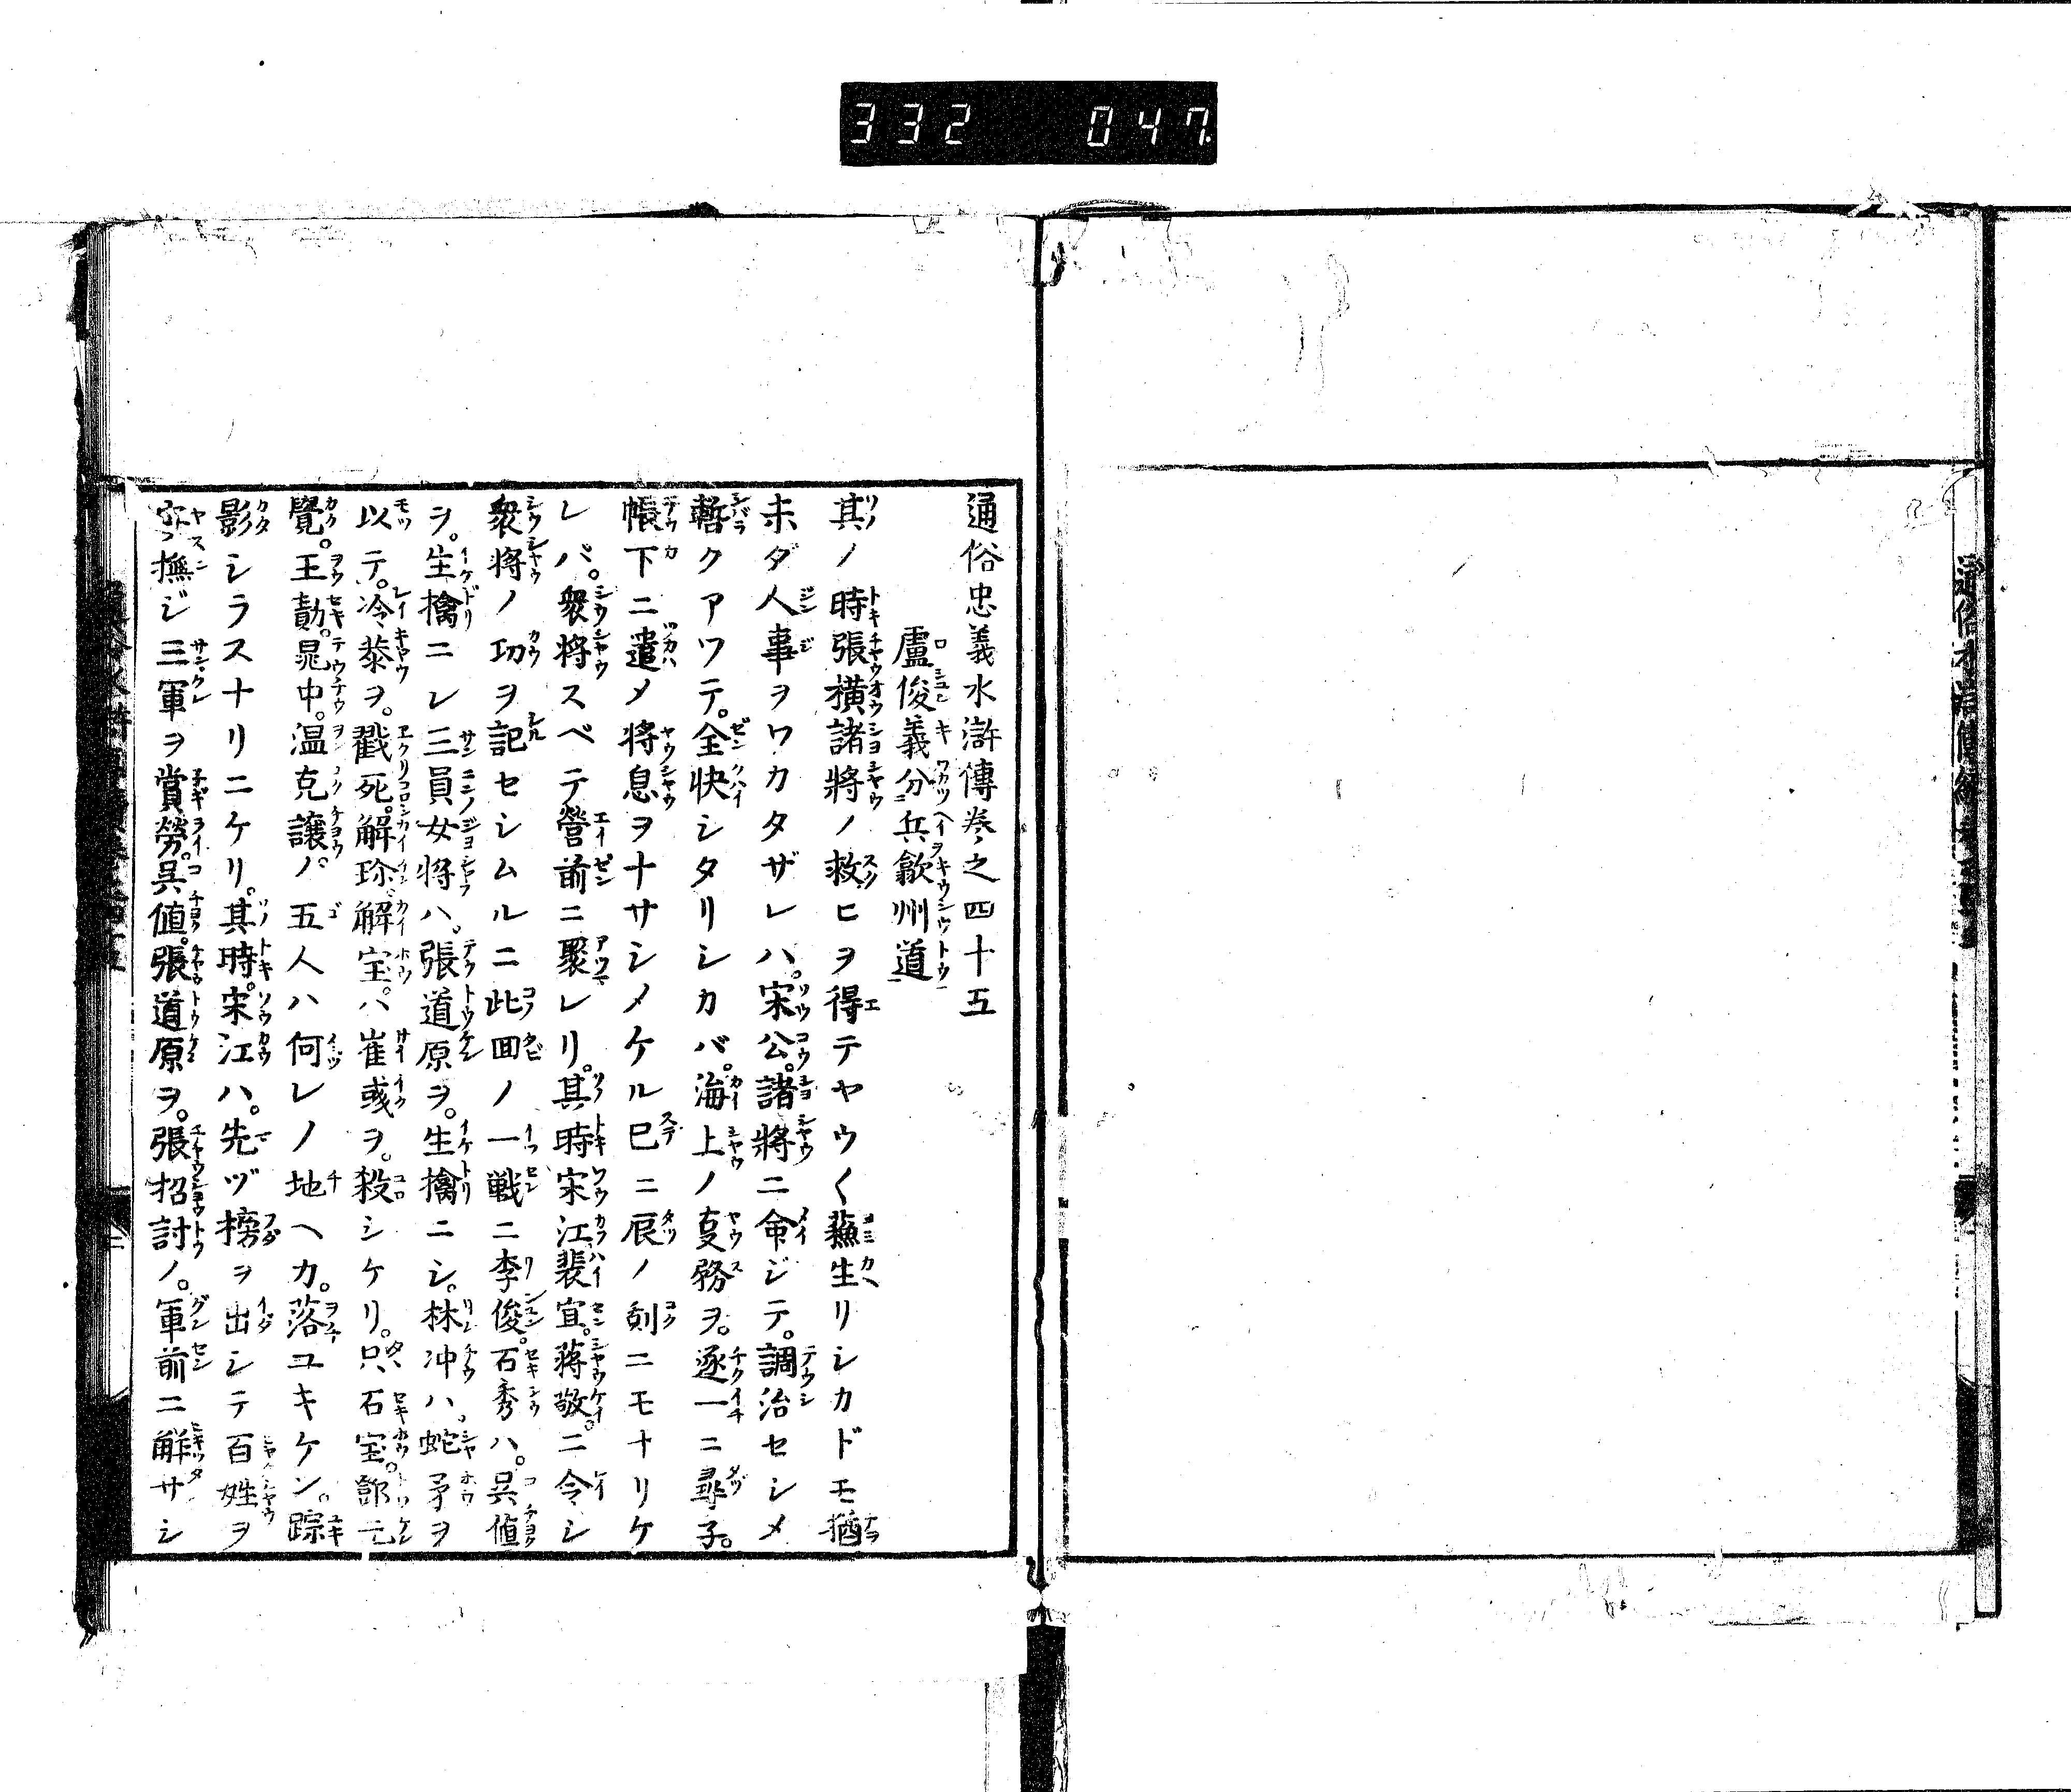 332 047
通俗忠義水滸傳巻之四十五
盧俊義分兵歙州道
其ノ時張横諸將ノ救ヒヲ得テヤウ〱蘓生リシカドモ猶
未ダ人事ヲワカタザレハ。宋公。諸將ニ命ジテ。調治セシメ
暫クアワテ。全快シタリシカバ。海上ノ叓務ヲ。逐一ニ尋子。
帳下ニ遣メ將息ヲナサシメケル巳ニ辰ノ刻ニモナリケ
レバ。衆將スベテ營前ニ聚レリ。其時宋江裴宣。蒋敬。ニ令シ
衆將ノ功ヲ記セシムルニ此回ノ一戦ニ李俊。石秀ハ。呉値
ヲ。生擒ニレ三員女將ハ。張道原ヲ。生擒ニシ。林冲ハ。蛇矛ヲ
以テ。冷恭ヲ。戳死。解珍。解宝。ハ崔彧ヲ。殺シケリ。只、石宝。鄧元
覺。王勣。晁中。温克譲ノ。五人ハ何レノ地ヘカ。落ユキケン。踪
影シラスナリニケリ。其時。宋江ハ。先ヅ榜ヲ出シテ百姓ヲ
安撫ジ三軍ヲ賞勞。呉値。張道原ヲ。張招討ノ。軍前ニ解サシ